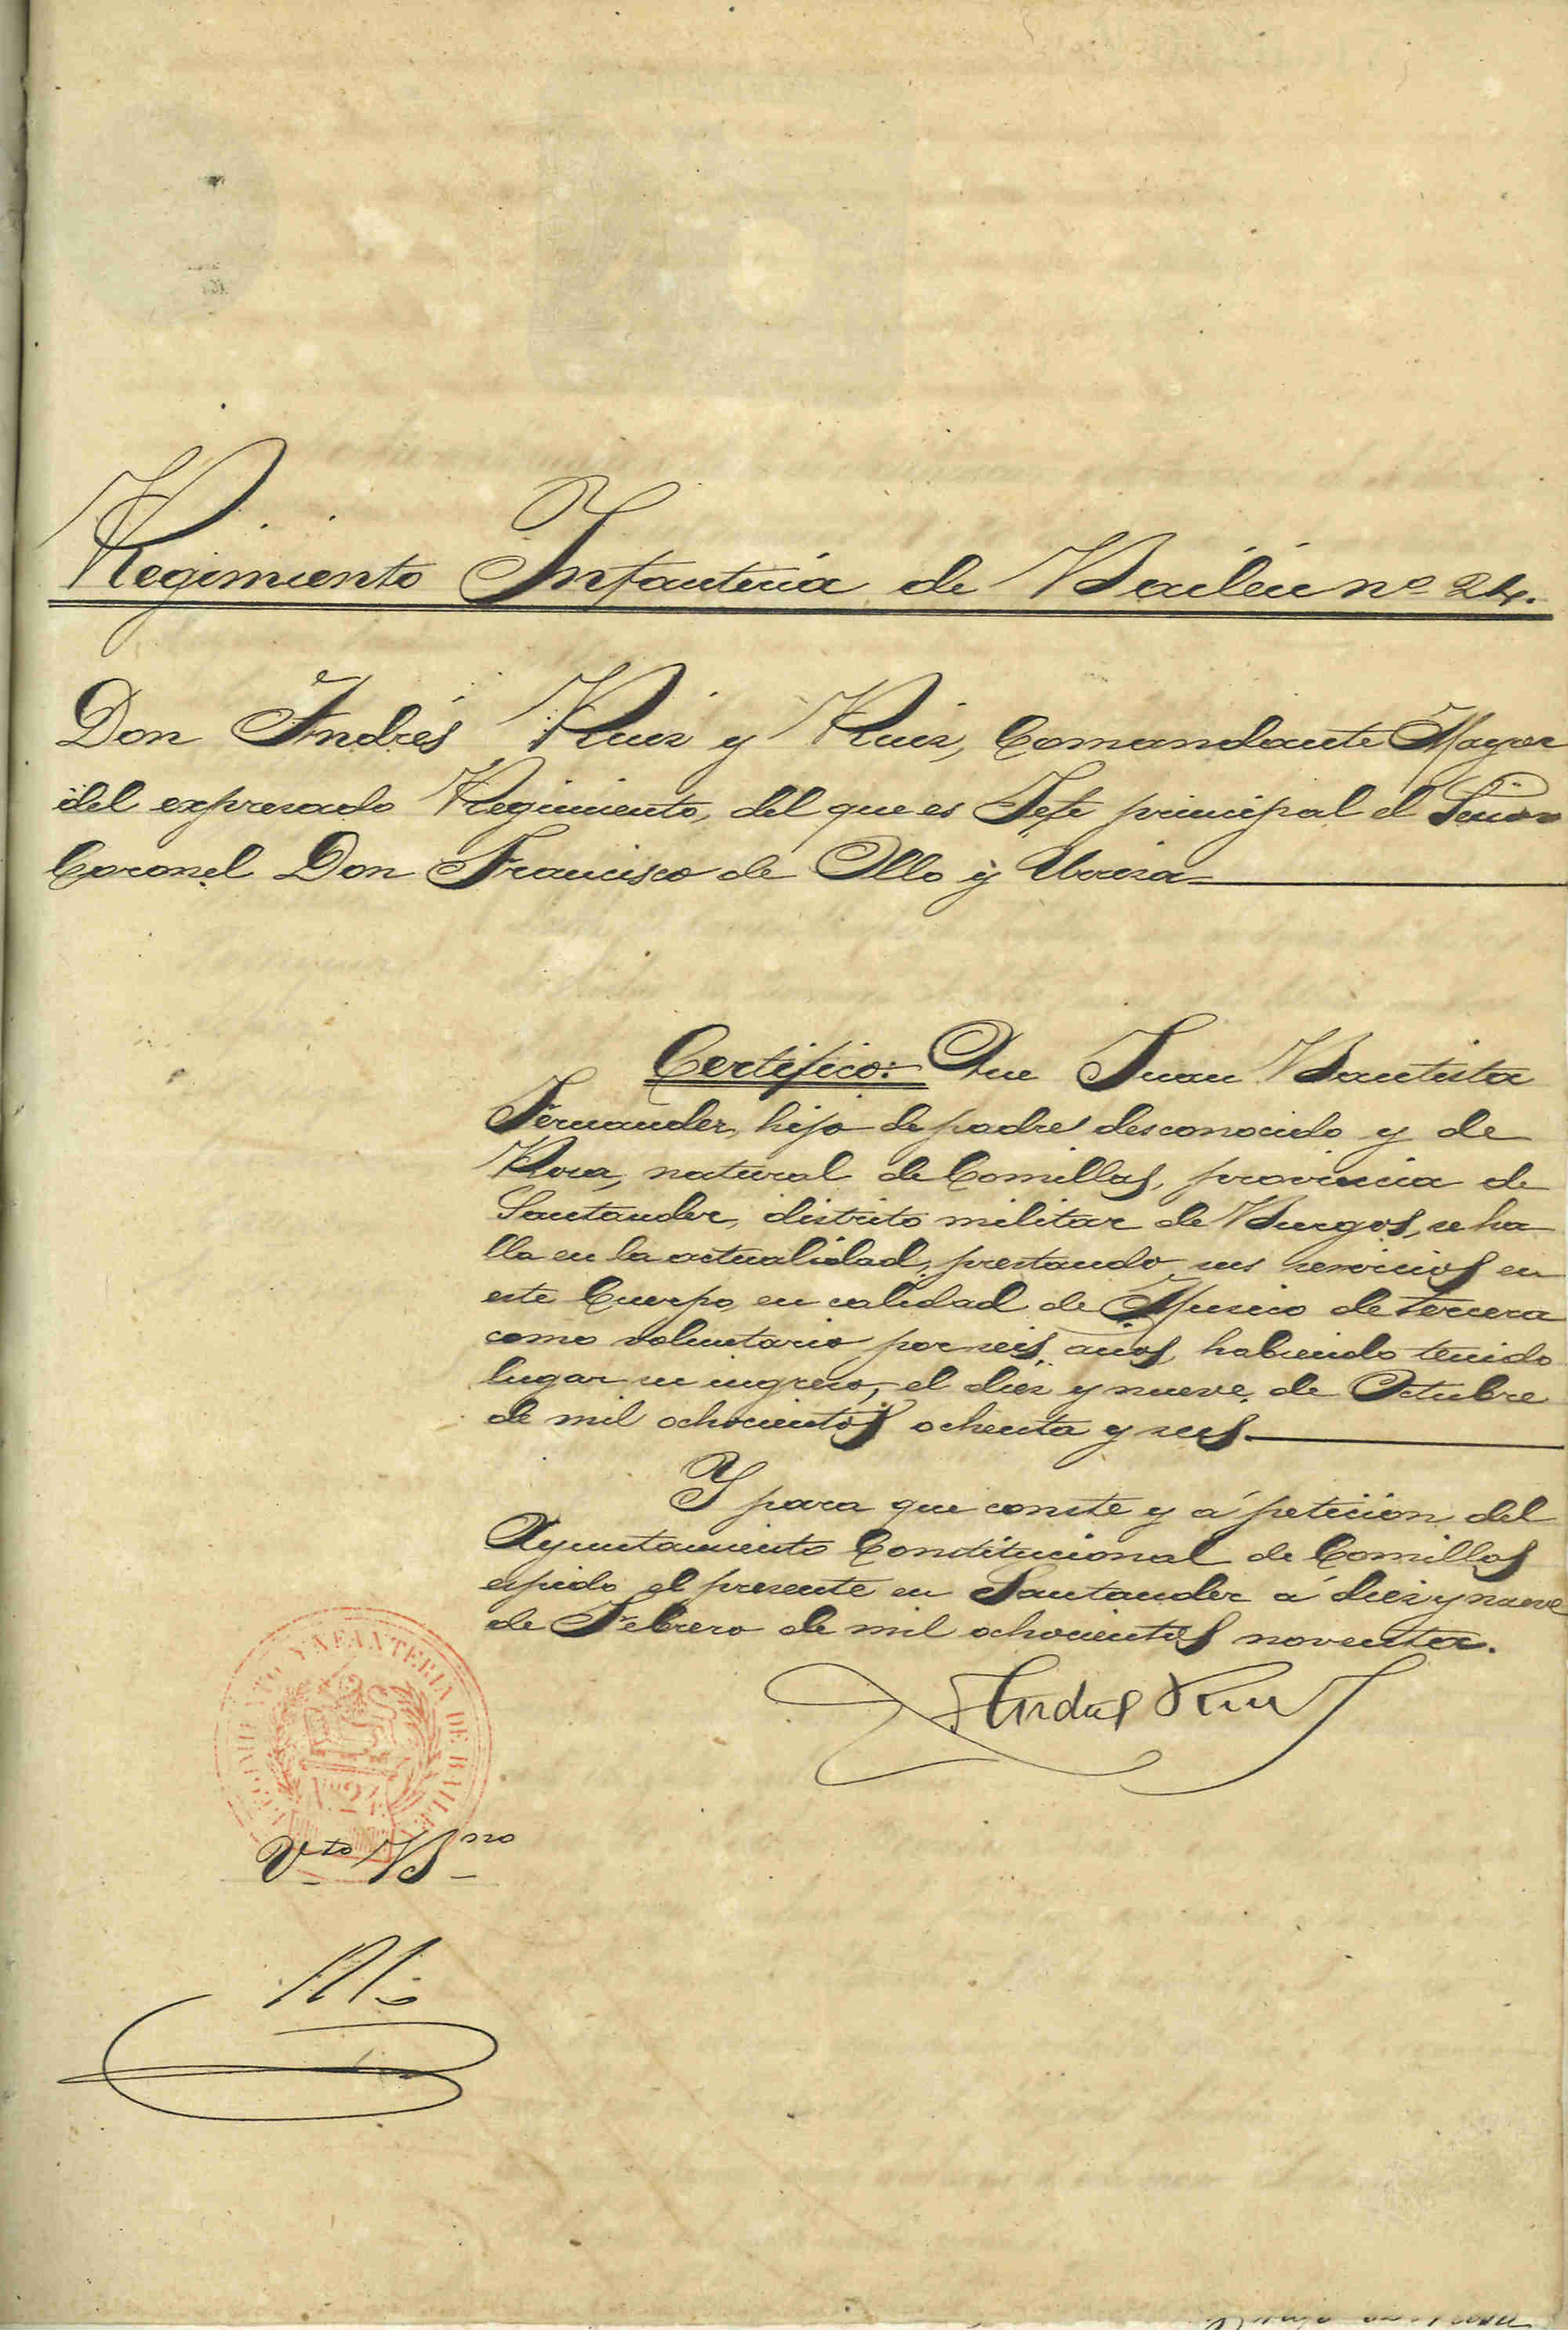 Regimiento Infantería de Bailén nº 24.
Don Andrés Ruiz y Ruiz, Comandante Mayor
del expresado Regimiento, del que es Jefe principal el Señor
Coronel Don Francisco de Ollo y
Certifico: Que Juan Bautista
Fernandez, hijo de padre desconocido y de
Rosa, natural de Comillas, provincia de
Santander, distrito militar de Burgos, se ha
lla en la actualidad, prestando sus servicios en
este Cuerpo en calidad de Musico de tercera
como voluntario por seis años, habiendo tenido
lugar su ingreso, el diez y nueve de Octubre
de mil ochocientos ochenta y seis.
Y para que conste y á petición del
Ayuntamiento Constitucional de Comillas
espido el presente en Santander á diez y nueve
de Febrero de mil ochocientos noventa.
Andrés Ruiz
REGIMIENTO YNFANTERIA DE BAILEN
Nº 24
Vto Bno
Ollo